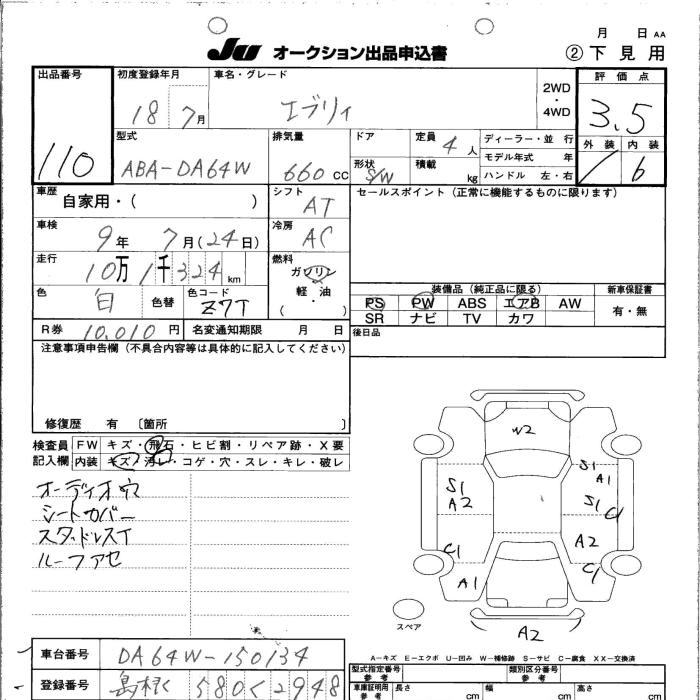 月 日 AA
JU オークション出品申込書
② 下見用
出品番号
110
初度登録年月
18 7月
車名・グレード
エブリイ
2WD・4WD
評価点
3.5
外装
内装
6
型式
ABA-DA64W
排気量
660 CC
ドア
形状
S/W
定員 4 人
積載 kg
ディーラー・並行
モデル年式 年
ハンドル 左・右
車歴
自家用・( )
シフト
AT
セールスポイント(正常に機能するものに限ります)
車検
9年 7月(24日)
冷房
AC
走行
10万1千324 km
燃料
ガソリン
軽・油
( )
色
白
色替
色コード
Z7T
装備品(純正品に限る)
PS PW ABS エアB AW
SR ナビ TV カワ
新車保証書
有・無
R券 10,010 円
名変通知期限 月 日
後日品
注意事項申告欄(不具合内容等は具体的に記入してください)
修復歴 有 〔箇所 〕
検査員記入欄
FW キズ・飛石・ヒビ割・リペア跡・X要
内装 キズ・汚レ・コゲ・穴・スレ・キレ・破レ
オーディオ穴
シートカバー
スタッドレスT
ルーフアセ
W2
S1
A1
S1
A2
S1
C1
A2
C1
C1
A1
A2
スペア
A-キズ E-エクボ U-凹み W-補修跡 S-サビ C-腐食 XX-交換済
車台番号
DA64W-150134
登録番号
島根 580 く 2948
型式指定番号
参考
類別区分番号
参考
車庫証明用
参考
長さ cm
幅 cm
高さ cm